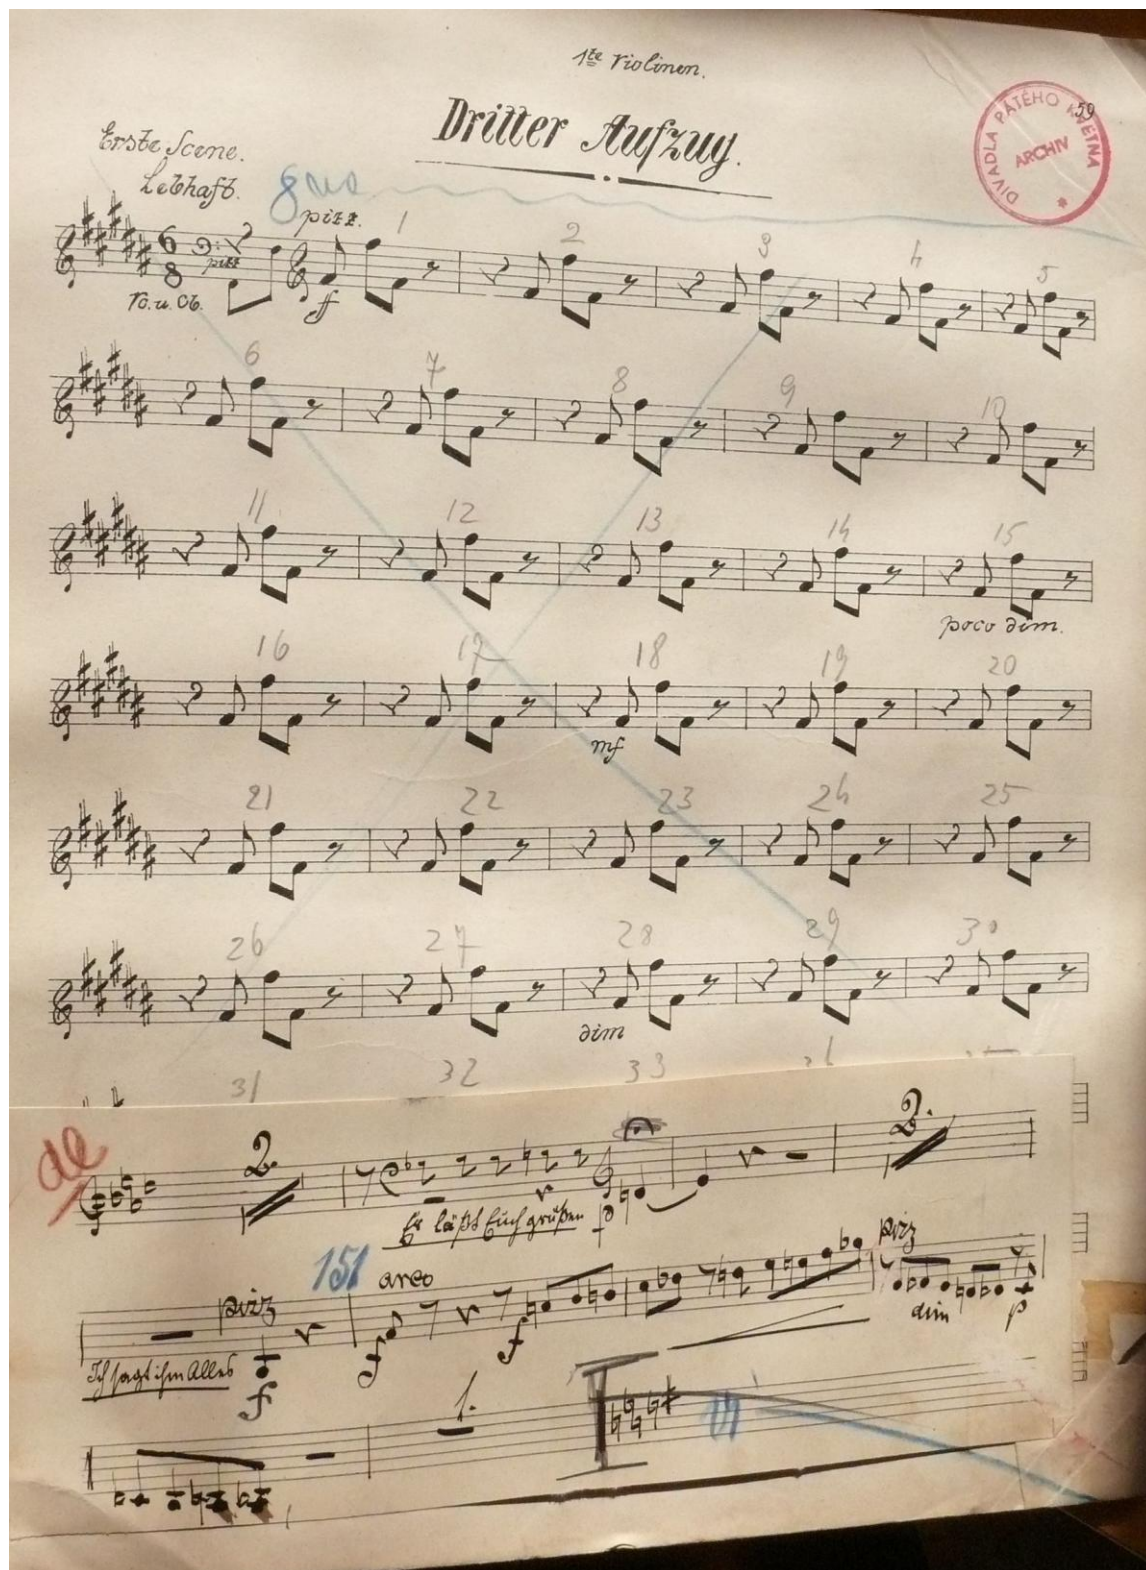 1te Violinen.
59
Dritter Aufzug.
DIVADLA PÁTÉHO KVĚTNA
ARCHIV
Erste Scene.
Lebhaft.
8va
pizz. 1 2 3 4 5
6 8 pizz
Vc. u. Cb. ff
6 7 8 9 10
11 12 13 14 15
poco dim.
16 17 18 19 20
mf
21 22 23 24 25
26 27 28 29 30
dim
31 32 33
de
2. 2.
Er läßt Euch grüßen p
pizz 151 arco pizz
Ich sagt ihm Alles f f f dim p
1.